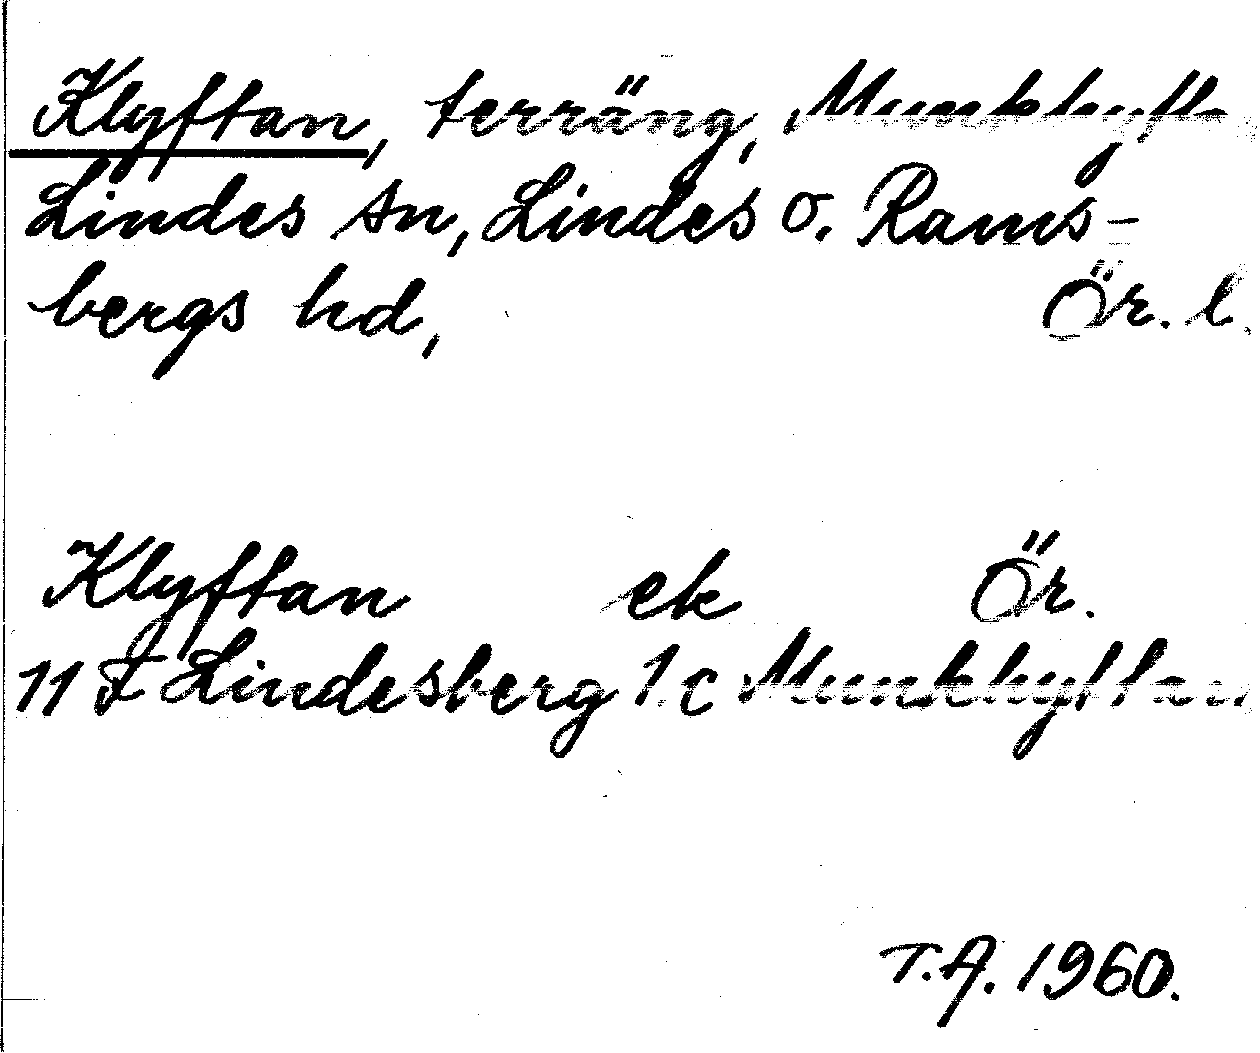 Klyftan, terräng, Munkhytta
Lindes sn, Lindes o. Rams-
bergs hd, Ör. l.
Klyftan ek Ör.
11 F Lindesberg 1 c Munkhyttan
T.A. 1960.